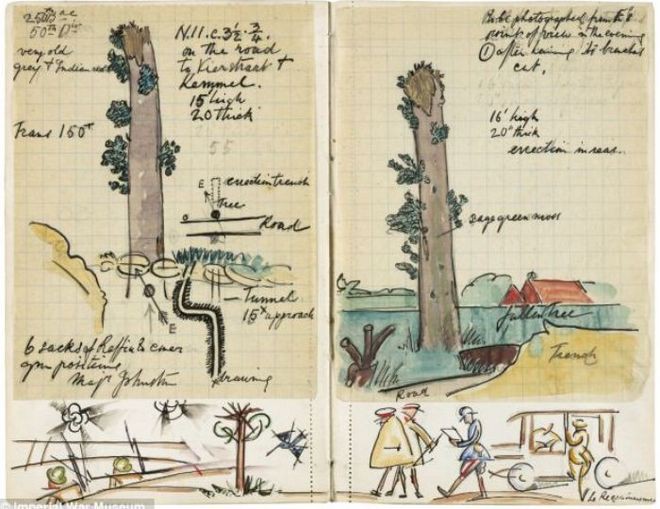 50th Div
very old
grey & Indian red
Trans 150x
N.11.c.3½.¾.
on the road
to Vierstraat &
Kemmel.
15' high
20" thick
55
E
erection trench
Tree
Road
E
Tunnel
15x approach
6 sacks of Raffia & cover
gun positions
Majr Johnston
drawing
To be photographed from the
point of view in the evening
① after having its branches
cut.
16' high
20" thick
erection in rear.
sage green moss
fallen tree
Trench
Road
La Reconnaissance
© Imperial War Museum